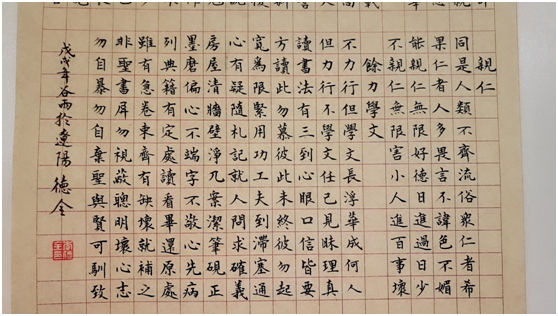 親仁
同是人類不齊流俗衆仁者希
果仁者人多畏言不諱色不媚
能親仁無限好德日進過日少
不親仁無限害小人進百事壞
餘力學文
不力行但學文長浮華成何人
但力行不學文任己見昧理真
讀書法有三到心眼口信皆要
方讀此勿慕彼此未終彼勿起
寬爲限緊用功工夫到滯塞通
心有疑隨札記就人問求確義
房屋清牆壁淨几案潔筆硯正
墨磨偏心不端字不敬心先病
列典籍有定處讀看畢還原處
雖有急卷束齊有缺壞就補之
非聖書屏勿視蔽聰明壞心志
勿自暴勿自棄聖與賢可馴致
戊戌年谷雨於遼陽 德全